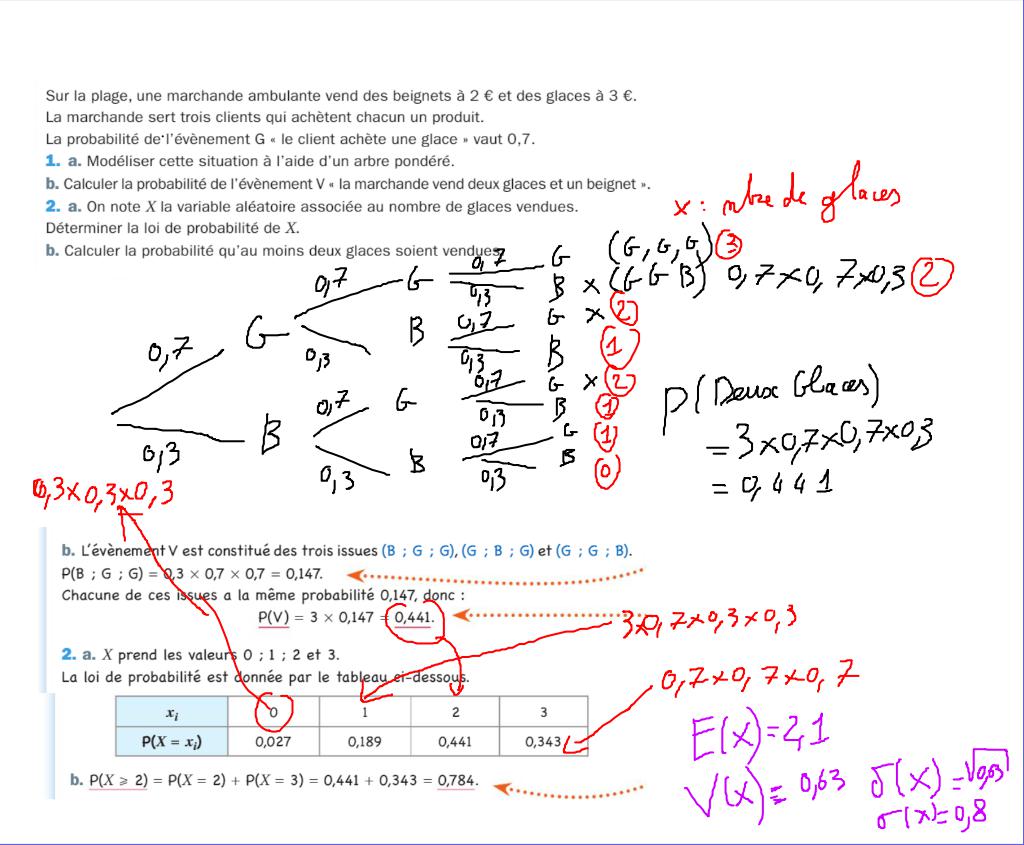 Sur la plage, une marchande ambulante vend des beignets à 2 € et des glaces à 3 €.
La marchande sert trois clients qui achètent chacun un produit.
La probabilité de l'évènement G « le client achète une glace » vaut 0,7.
1. a. Modéliser cette situation à l'aide d'un arbre pondéré.
b. Calculer la probabilité de l'évènement V « la marchande vend deux glaces et un beignet ».
2. a. On note X la variable aléatoire associée au nombre de glaces vendues.
Déterminer la loi de probabilité de X.
b. Calculer la probabilité qu'au moins deux glaces soient vendues
x : nbre de glaces
0,7 G 0,7 G 0,7 G (G, G, G) 3
0,3 B x (G G B) 0,7x0,7x0,3 2
0,3 B 0,7 G x 2
0,3 B 1
0,3 B 0,7 G 0,7 G x 2
0,3 B 1
0,3 B 0,7 G 1
0,3 B 0
P(Deux Glaces)
= 3x0,7x0,7x0,3
= 0,441
0,3x0,3x0,3
b. L'évènement V est constitué des trois issues (B ; G ; G), (G ; B ; G) et (G ; G ; B).
P(B ; G ; G) = 0,3 × 0,7 × 0,7 = 0,147.
Chacune de ces issues a la même probabilité 0,147, donc :
P(V) = 3 × 0,147 = 0,441.
3x0,7x0,3x0,3
2. a. X prend les valeurs 0 ; 1 ; 2 et 3.
La loi de probabilité est donnée par le tableau ci-dessous.
0,7x0,7x0,7
xi 0 1 2 3
P(X = xi) 0,027 0,189 0,441 0,343
b. P(X ⩾ 2) = P(X = 2) + P(X = 3) = 0,441 + 0,343 = 0,784.
E(X)=2,1
V(X)= 0,63
σ(X)=√0,63
σ(X)=0,8